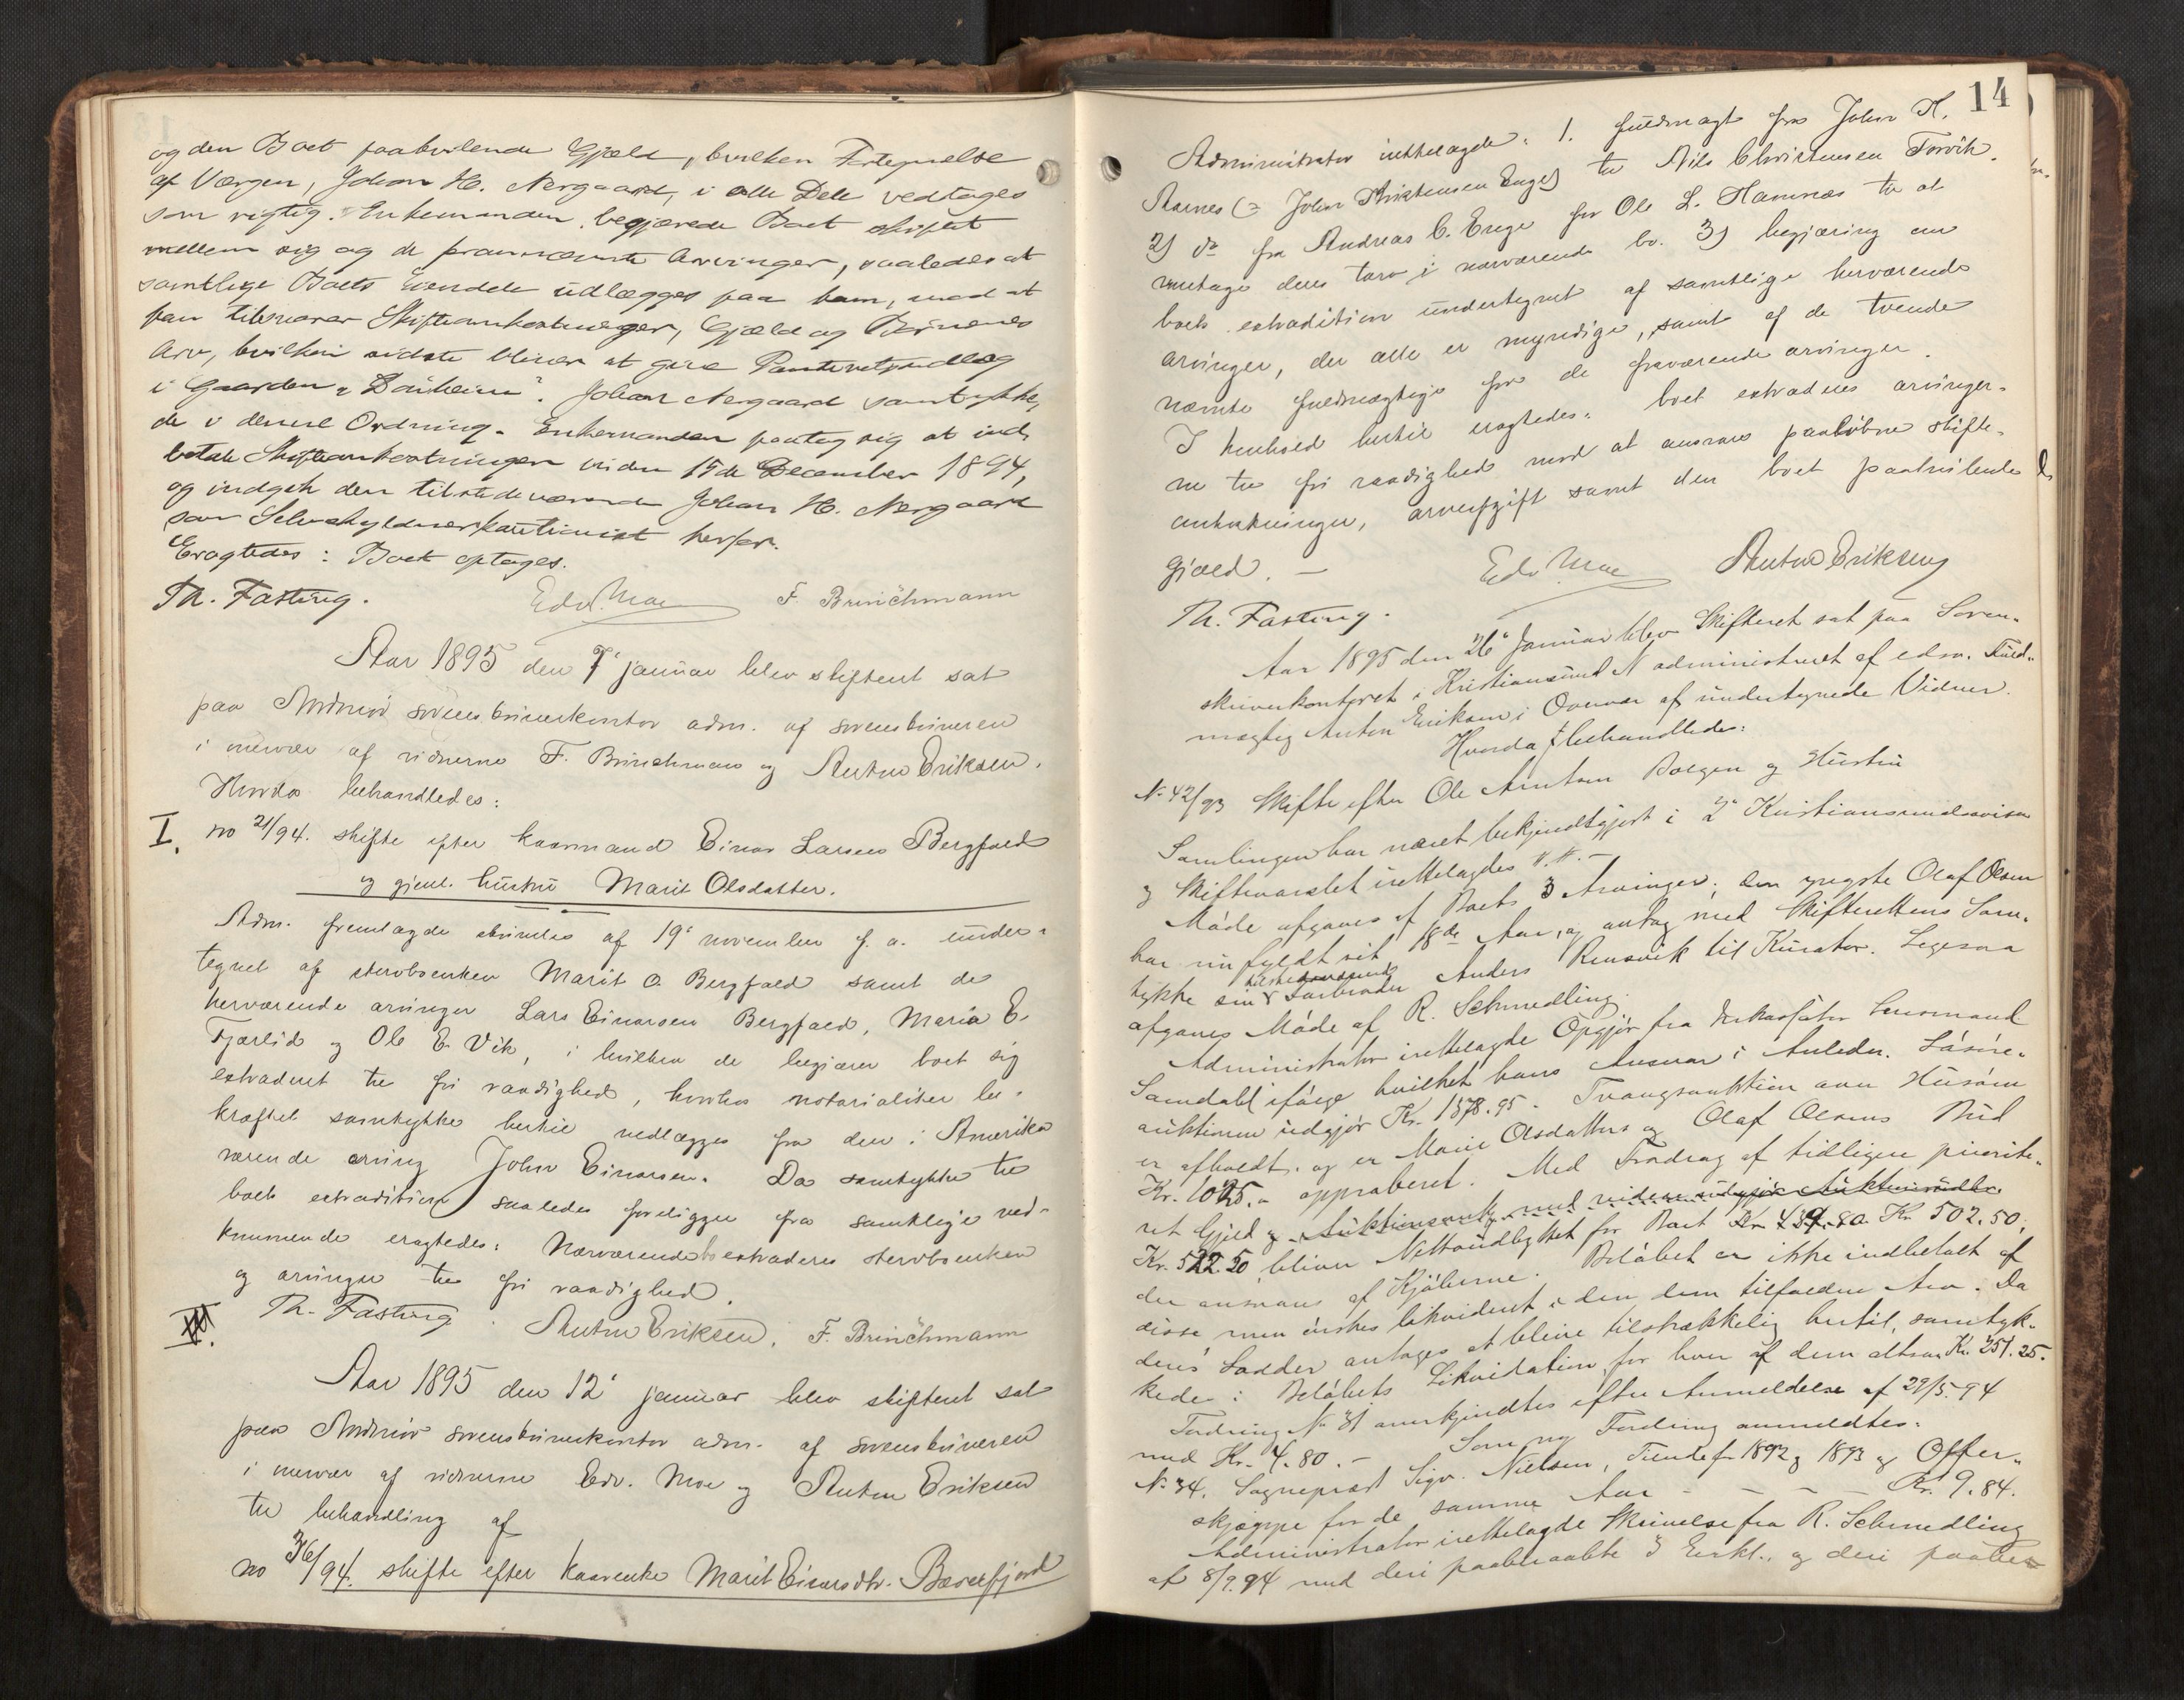 og den Boet paahvilende Gjæld, hvilken Fortegnelse
af Værgen, Johan H. Nergaard, i alle Dele vedtages
som rigtig. Enkemanden begjærede Boet skiftet
mellem sig og de fornævnte Arvinger, saaledes at
samtlige Boets Eiendele udlægges paa ham, mod at
han tilsvarer Skifteomkostninger, Gjæld og Børnenes
Arv, hvilken sidste bliver at give Panteretsudlæg
i Gaarden "Dönheim". Johan Nergaard samtykke,
de i denne Ordning. Enkemanden paatog sig at ind,
betale Skifteomkostningerne inden 15de December 1894,
og indgik den tilstedeværende Johan H. Nergaard
som Selvskyldnerkautionist herfor.
Eragtedes: Boet optages.
Th. Fasting. Edv. Moe F. Brinchmann
Aar 1895 den 7' januar blev skifteret sat
paa Nordmör sorenskriverkontor adm. af sorenskriveren
i overvær af vidnerne F. Brinchmann og Anton Eriksen.
Hvorda behandledes:
I. no 21/94. skifte efter kaarmand Einar Larsen Bergfald
og gjenl. hustru Marit Olsdatter.
Adm. fremlagde skrivelse af 19' november f. a. under-
tegnet af stervboenken Marit O. Bergfald samt de
herværende arvinger Lars Einarsen Bergfald, Maria E.
Fjærlid og Ole E. Vik, i hvilken de begjærer boet sig
extraderet til fri raadighed, hvorhos notarialiter be-
kræftet samtykke hertil vedlægges fra den i Amerika
værende arving John Einarsen. Da samtykke til
boets extradition saaledes foreligger fra samtlige ved-
kommende eragtedes: Nærværende bo extraderes stervboenken
og arvinger til fri raadighed.
Th. Fasting. Anton Eriksen. F. Brinchmann
Aar 1895 den 12' januar blev skifteret sat
paa Nordmör sorenskriverkontor adm. af sorenskriveren
i overvær af vidnerne Edv. Moe og Anton Eriksen
til behandling af
no 36/94. skifte efter kaarenke Marit Einarsdtr. Bæverfjord
14
Administrator irettelagde: 1. fuldmagt fra John K.
Aarnes (= John Kristensen Enge) til Nils Christensen Torvik.
2) do fra Andreas C. Enge for Ole L. Hamnæs til at
mottage deres tarv i nærværende bo. 3) begjæring om
boets extradition undertegnet af samtlige herværende
arvinger, der alle er myndige, samt af de tvende
nævnte fuldmægtige for de fraværende arvinger.
I henhold hertil eragtedes: boet extraderes arvinger-
ne til fri raadighed mod at ansvare paaløbne skifte-
omkostninger, arveafgift samt den boet paahvilende
gjæld. —
Th. Fasting. Edv. Moe Anton Eriksen
Aar 1895 den 26' Januar blev Skifteret sat paa Soren-
skriverkontoret i Kristiansund N administreret af edsv. Fuld-
mægtig Anton Eriksen i Overvær af undertegnede Vidner.
Hvorda behandledes:
No 42/93 Skifte efter Ole Arntsen Bolgen og Hustru
Samlingen har været bekjendtgjort i 2' Kristiansundsaviser
og Skiftevarslet irettelagdes
Møde afgaves af Boets 3 Arvinger; den yngste Olaf Olsen
har nu fyldt sit 18de Aar, og antog med Skifterettens Sam-
tykke sin tilstedeværende Farbroder Anders Rensvik til Kurator. Ligesaa
afgaves Møde af R. Schmedling.
Administrator irettelagde Opgjør fra Inkassator Lensmand
Samdahl ifølge hvilket hans Ansvar i Anledn. Løsøre-
auktionen udgjør Kr. 1378.95. Tvangsauktion over Husene
er afholdt. og er Marie Olsdatters og Olaf Olsens Bud
Kr. 1025.- approberet. Med Fradrag af tidligere priorite-
ret Gjæld og Auktionsomk. med videre udgjør Auktionsudbr.
Kr. 522.50, bliver Nettoudbyttet for Boet Kr. 489.80 Kr 502.50;
der ansvares af Kjøberne. Beløbet er ikke indbetalt af
disse men ønskes likvideret i den dem tilfaldne Arv. Da
deres Lodder antages at blive tilstrækkelig hertil, samtyk-
kedes i Beløbets Likvidation for hver af dem altsaa Kr. 251.25.
Fordring No 31 anerkjendtes efter Anmeldelse af 29/5.94
med Kr. 4.80. — Som ny Fordring anmeldtes:
No 34. Sogneprest Sigv. Nielsen, Tiende for 1892 og 1893 og Offer-
skjæppe for de samme Aar - - - - Kr. 9.84.
Administrator irettelagde Skrivelse fra R. Schmedling
af 8/9.94 med deri paaberaabte 3 Erkl., og deri paabe-